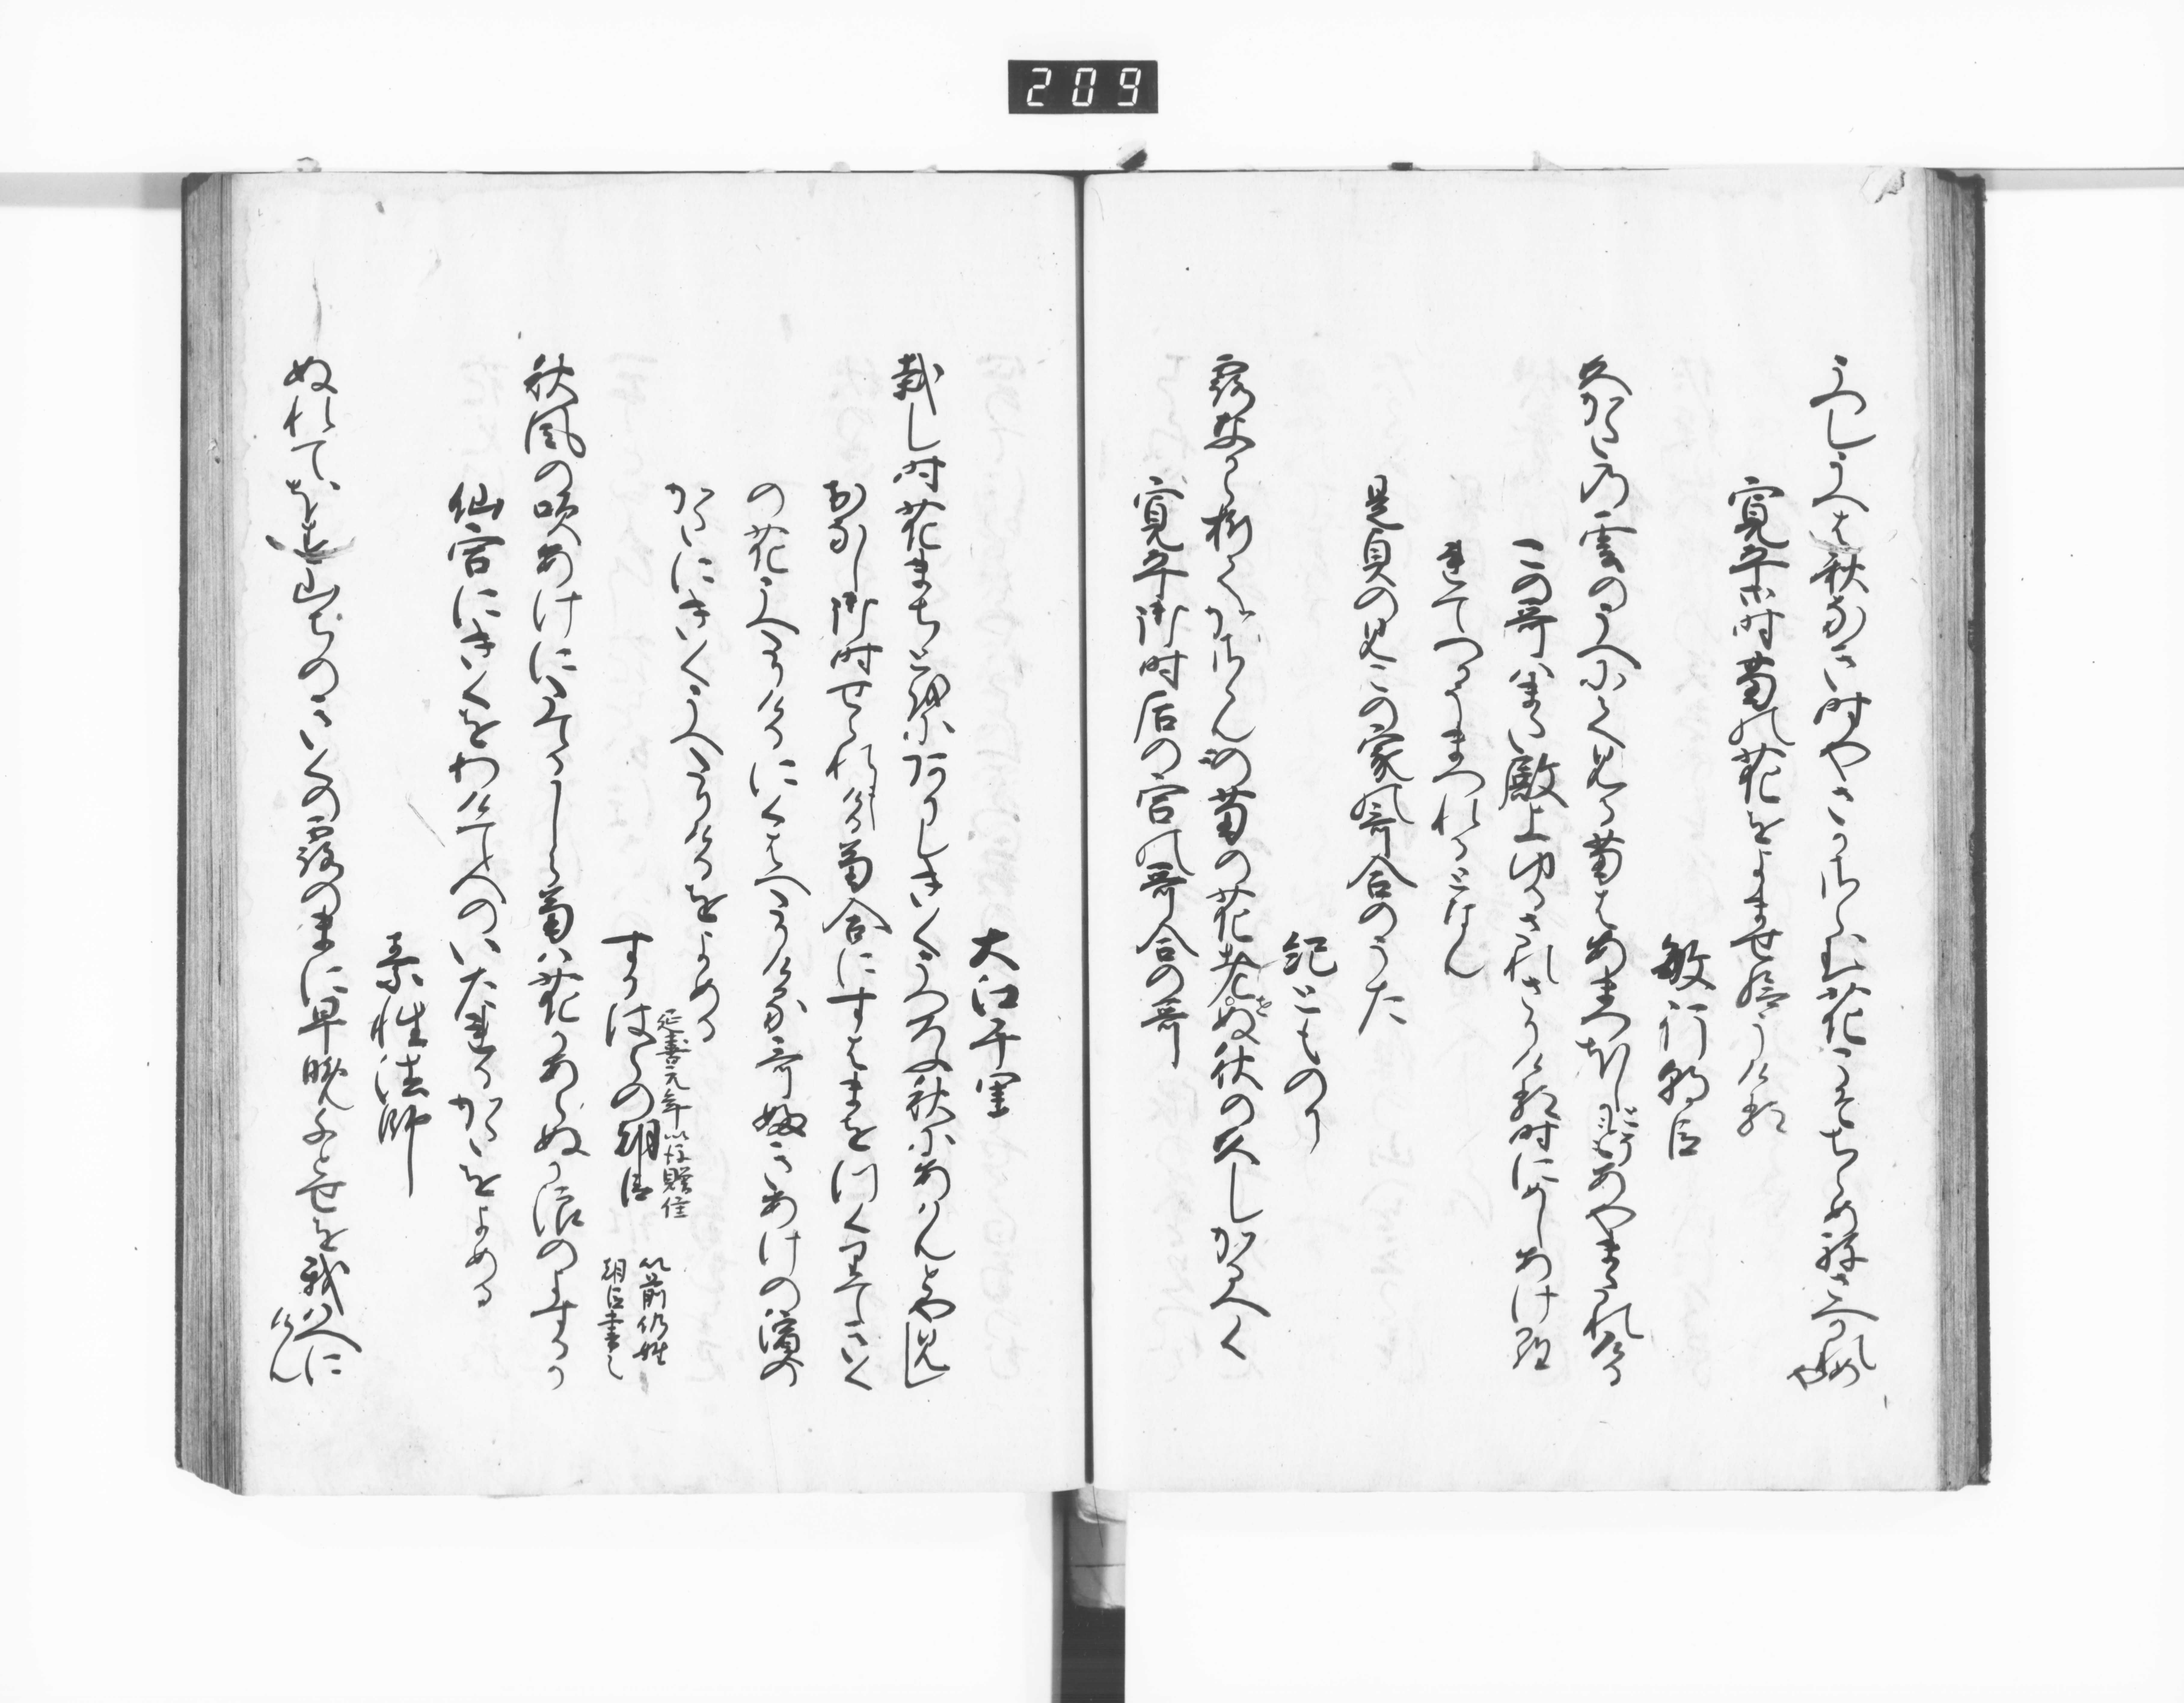 209
うへしうへは秋なき時やさかさらむ花こそちらめ祢さへかれめや
寛平御時菊の花をよませ給うける
敏行朝臣
久かたの雲のうへにて見る菊はあまつほしとそあやまたれける
この哥はまた殿上ゆるされさりける時にめしあけ
られてつかうまつれるとなん
是貞のみこの家の哥合のうた
紀とものり
露なから折てかさゝん菊の花老せぬ秋の久しかるへく
寛平御時后の宮の哥合の哥
大江千里
栽し時花まちとをにありしきくうつろふ秋にあはんとや見し
おなし御時せられける菊合にすはまをつくりてきく
の花うへたりけるにくはへたりける哥吹あけの濱の
かたにきくうへたりけるをよめる
すかはらの朝臣
秋風の吹あけにたてるしら菊は花かあらぬか浪のよするか
仙宮にきくをわけて人のいたれるかたをよめる
素性法師
ぬれてほす山ちのきくの露のまに早晩千とせを我はへにけん